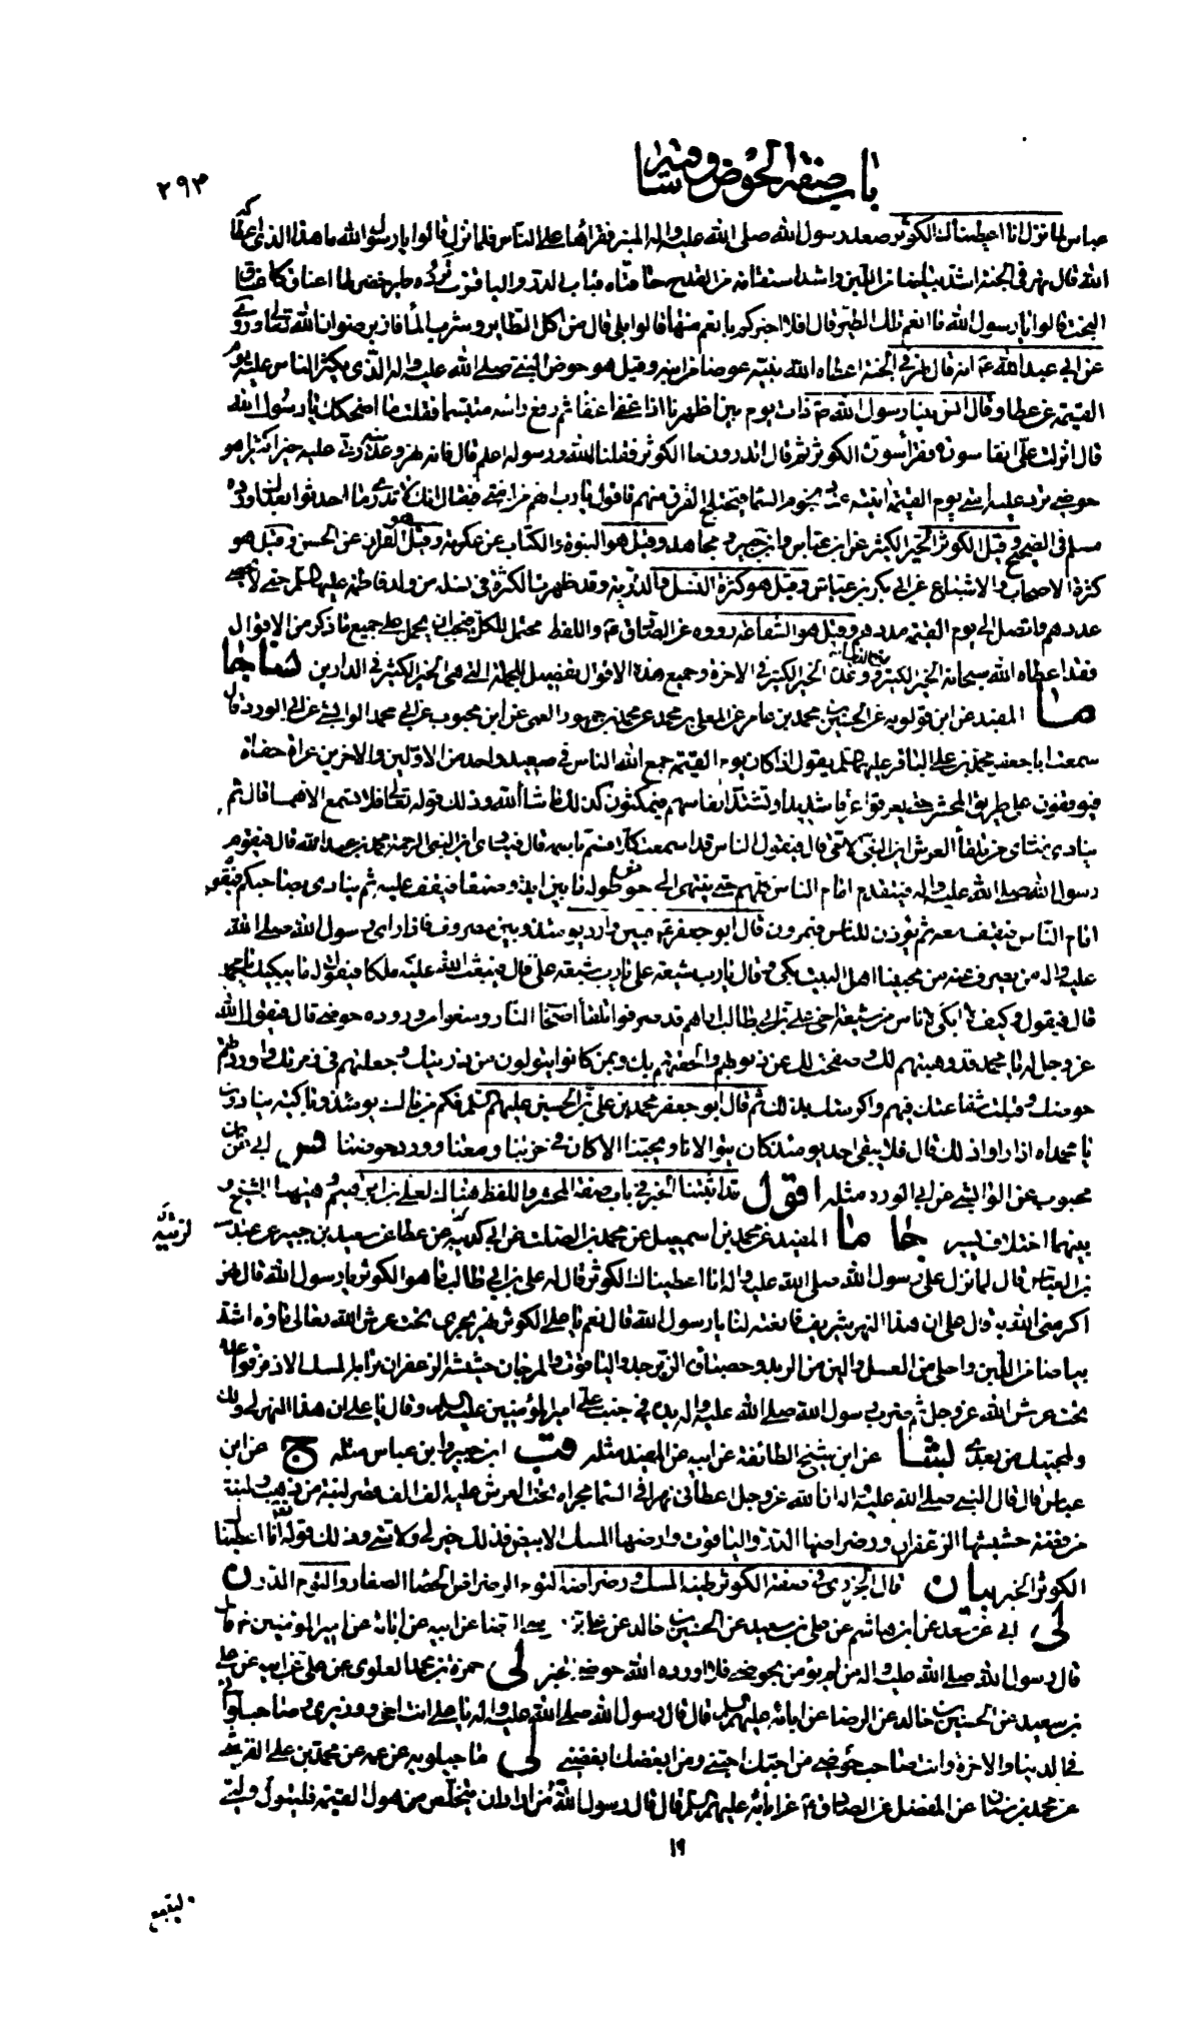 باب صفة الحوض وساقيه
٢٩٣
عباس لما نزل انا اعطيناك الكوثر صعد رسول الله صلى الله عليه واله المنبر فقرأها على الناس فلما نزل قالوا يا رسول الله ما هذا الذى اعطاكه
الله قال نهر فى الجنة اشد بياضا من اللبن واشد استقامة من القدح حافتاه قباب الدر والياقوت ترده طير خضر لها اعناق كاعناق
البخت قالوا يا رسول الله ما انعم تلك الطير قال افلا اخبركم بانعم منها قالوا بلى قال من اكل الطاير وشرب الماء فاز برضوان الله تعالى وروى
عن ابى عبد الله ع انه قال نهر فى الجنة اعطاه الله نبيه عوضا من ابنه وقيل هو حوض النبى صلى الله عليه واله الذى يكثر الناس عليه يوم
القيمة عن عطا وقال انس بينا رسول الله ص ذات يوم بين اظهرنا اذا غفى اغفاء ثم رفع راسه متبسما فقلت ما اضحكك يا رسول الله
قال انزلت على انفا سورة فقرأ سورة الكوثر ثم قال اتدرون ما الكوثر فقلنا الله ورسوله اعلم قال فانه نهر وعدنيه ربى عليه خيرا كثيرا هو
حوضى ترد عليه امتى يوم القيمة انيته عدد نجوم السماء فيختلج القرن منهم فاقول يا رب انهم من امتى فيقال انك لا تدرى ما احدثوا بعدك اورده
مسلم فى الصحيح وقيل الكوثر الخير الكثير عن ابن عباس وابن جبير ومجاهد وقيل هو النبوة والكتاب عن عكرمة وقيل هو القران عن الحسن وقيل هو
كثرة الاصحاب والاشياع عن ابى بكر بن عياش وقيل هو كثرة النسل والذرية وقد ظهرت الكثرة فى نسله من ولد فاطمة عليها السلم حتى لا يحصى
عددهم واتصل الى يوم القيمة مددهم وقيل هو الشفاعة رووه عن الصادق ع واللفظ محتمل للكل فيجب ان يحمل على جميع ما ذكر من الاقوال
فقد اعطاه الله سبحانه الخير الكثير فى الدنيا ووعده الخير الكثير فى الاخرة وجميع هذه الاقوال تفصيل للجملة التى هى الخير الكثير فى الدارين
ما المفيد عن ابن قولويه عن الحسين بن محمد بن عامر عن المعلى بن محمد عن محمد بن جمهور العمى عن ابن محبوب عن ابى محمد الوابشى عن ابى الورد قال
سمعت ابا جعفر محمد بن على الباقر عليهما السلم يقول اذا كان يوم القيمة جمع الله الناس فى صعيد واحد من الاولين والاخرين عراة حفاة
فيوقفون على طريق المحشر حتى يعرقوا عرقا شديدا وتشتد انفاسهم فيمكثون كذلك ما شاء الله وذلك قوله تعالى فلا تسمع الا همسا قال ثم
ينادى مناد من تلقاء العرش اين النبى الامى قال فيقول الناس قد اسمعت كلا فسم باسمه قال فينادى اين نبى الرحمة محمد بن عبد الله قال فيقوم
رسول الله صلى الله عليه واله فيتقدم امام الناس كلهم حتى ينتهى الى حوض طوله ما بين ايلة وصنعا فيقف عليه ثم ينادى بصاحبكم فيقوم
امام الناس فيقف معه ثم يؤذن للناس فيمرون قال ابو جعفر ع فبين وارد يومئذ وبين مصروف فاذا راى رسول الله صلى الله
عليه واله من يصرف عنه من محبينا اهل البيت بكى وقال يا رب شيعة على يا رب شيعة على قال فيبعث الله عليه ملكا فيقول له ما يبكيك يا محمد
قال فيقول وكيف لا ابكى لاناس من شيعة اخى على بن ابى طالب اراهم قد صرفوا تلقاء اصحاب النار ومنعوا من ورود حوضى قال فيقول الله
عز وجل له يا محمد قد وهبتهم لك وصفحت لك عن ذنوبهم والحقتهم بك وبمن كانوا يتولون من ذريتك وجعلتهم فى زمرتك واوردتهم
حوضك وقبلت شفاعتك فيهم واكرمتك بذلك ثم قال ابو جعفر محمد بن على بن الحسين عليهم السلم فكم من باك يومئذ وباكية ينادون
يا محمداه اذا راوا ذلك قال فلا يبقى احد يومئذ كان يتوالانا ويحبنا الا كان فى حزبنا ومعنا وورد حوضنا فس ابى عن ابن
محبوب عن الوابشى عن ابى الورد مثله اقول قد اثبتنا الخبر فى باب صفة المحشر واللفظ هناك لعلى بن ابرهيم وهيهنا للشيخ و
بينهما اختلاف يسير جا ما المفيد عن محمد بن اسمعيل عن محمد بن الصلت عن ابى كدينة عن عطا عن سعيد بن جبير عن عبد الله
بن العباس قال لما نزل على رسول الله صلى الله عليه واله انا اعطيناك الكوثر قال له على بن ابى طالب ما هو الكوثر يا رسول الله قال نهر
اكرمنى الله به قال على ان هذا النهر شريف فانعته لنا يا رسول الله قال نعم يا على الكوثر نهر يجرى تحت عرش الله تعالى ماؤه اشد
بياضا من اللبن واحلى من العسل والين من الزبد وحصباؤه الزبرجد والياقوت والمرجان حشيشه الزعفران ترابه المسك الاذفر قواعده
تحت عرش الله عز وجل ثم ضرب رسول الله صلى الله عليه واله يده فى جنب على امير المؤمنين عليه السلم وقال يا على ان هذا النهر لى ولك
ولمحبيك من بعدى بشا عن ابن شيخ الطائفة عن ابيه عن المفيد مثله قب ابن جبير وابن عباس مثله ج عن ابن
عباس قال قال النبى صلى الله عليه واله ان الله عز وجل اعطانى نهرا فى السماء مجراه تحت العرش عليه الف الف قصر لبنة من ذهب ولبنة
من فضة حشيشها الزعفران ورضراضها الدر والياقوت وارضها المسك الابيض فذلك خير لى ولامتى وذلك قوله تعالى انا اعطيناك
الكوثر الخبر بيان قال الجزرى فى صفة الكوثر طينه المسك ورضراضه التوم الرضراض الحصا الصغار والتوم الدر ن
لى ابى عن سعد عن ابن هاشم عن على بن معبد عن الحسين بن خالد عن على بن موسى الرضا عن ابيه عن ابائه عن امير المومنين ع قال
قال رسول الله صلى الله عليه واله من لم يؤمن بحوضى فلا اورده الله حوضى الخبر لى حمزة بن محمد العلوى عن على عن ابيه عن على
بن معبد عن الحسين بن خالد عن الرضا عن ابائه عليهم السلم قال قال رسول الله صلى الله عليه واله يا على انت اخى ووزيرى وصاحب لوائى
فى الدنيا والاخرة وانت صاحب حوضى من احبك احبنى ومن ابغضك ابغضنى لى ماجيلويه عن عمه عن محمد بن على القرشى
عن محمد بن سنان عن المفضل عن الصادق ع عن ابائه عليهم السلم قال قال رسول الله ص من اراد ان يتخلص من هول القيمة فليتول وليى
١٩
وليتبع